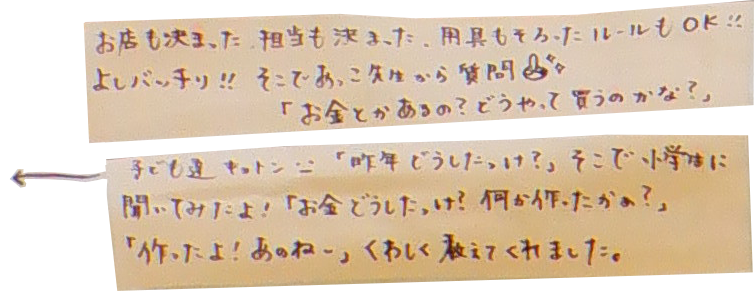 お店も決まった 担当も決まった、用具もそろった ルールもOK!!
よしバッチリ!! そこであっこ先生から質問
「お金とかあるの?どうやって買うのかな?」
子ども達 キョトン 「昨年どうしたっけ?」そこで小学生に
聞いてみたよ!「お金どうしたっけ?何か作ったかぁ?」
「作ったよ!あのねー」くわしく教えてくれました。